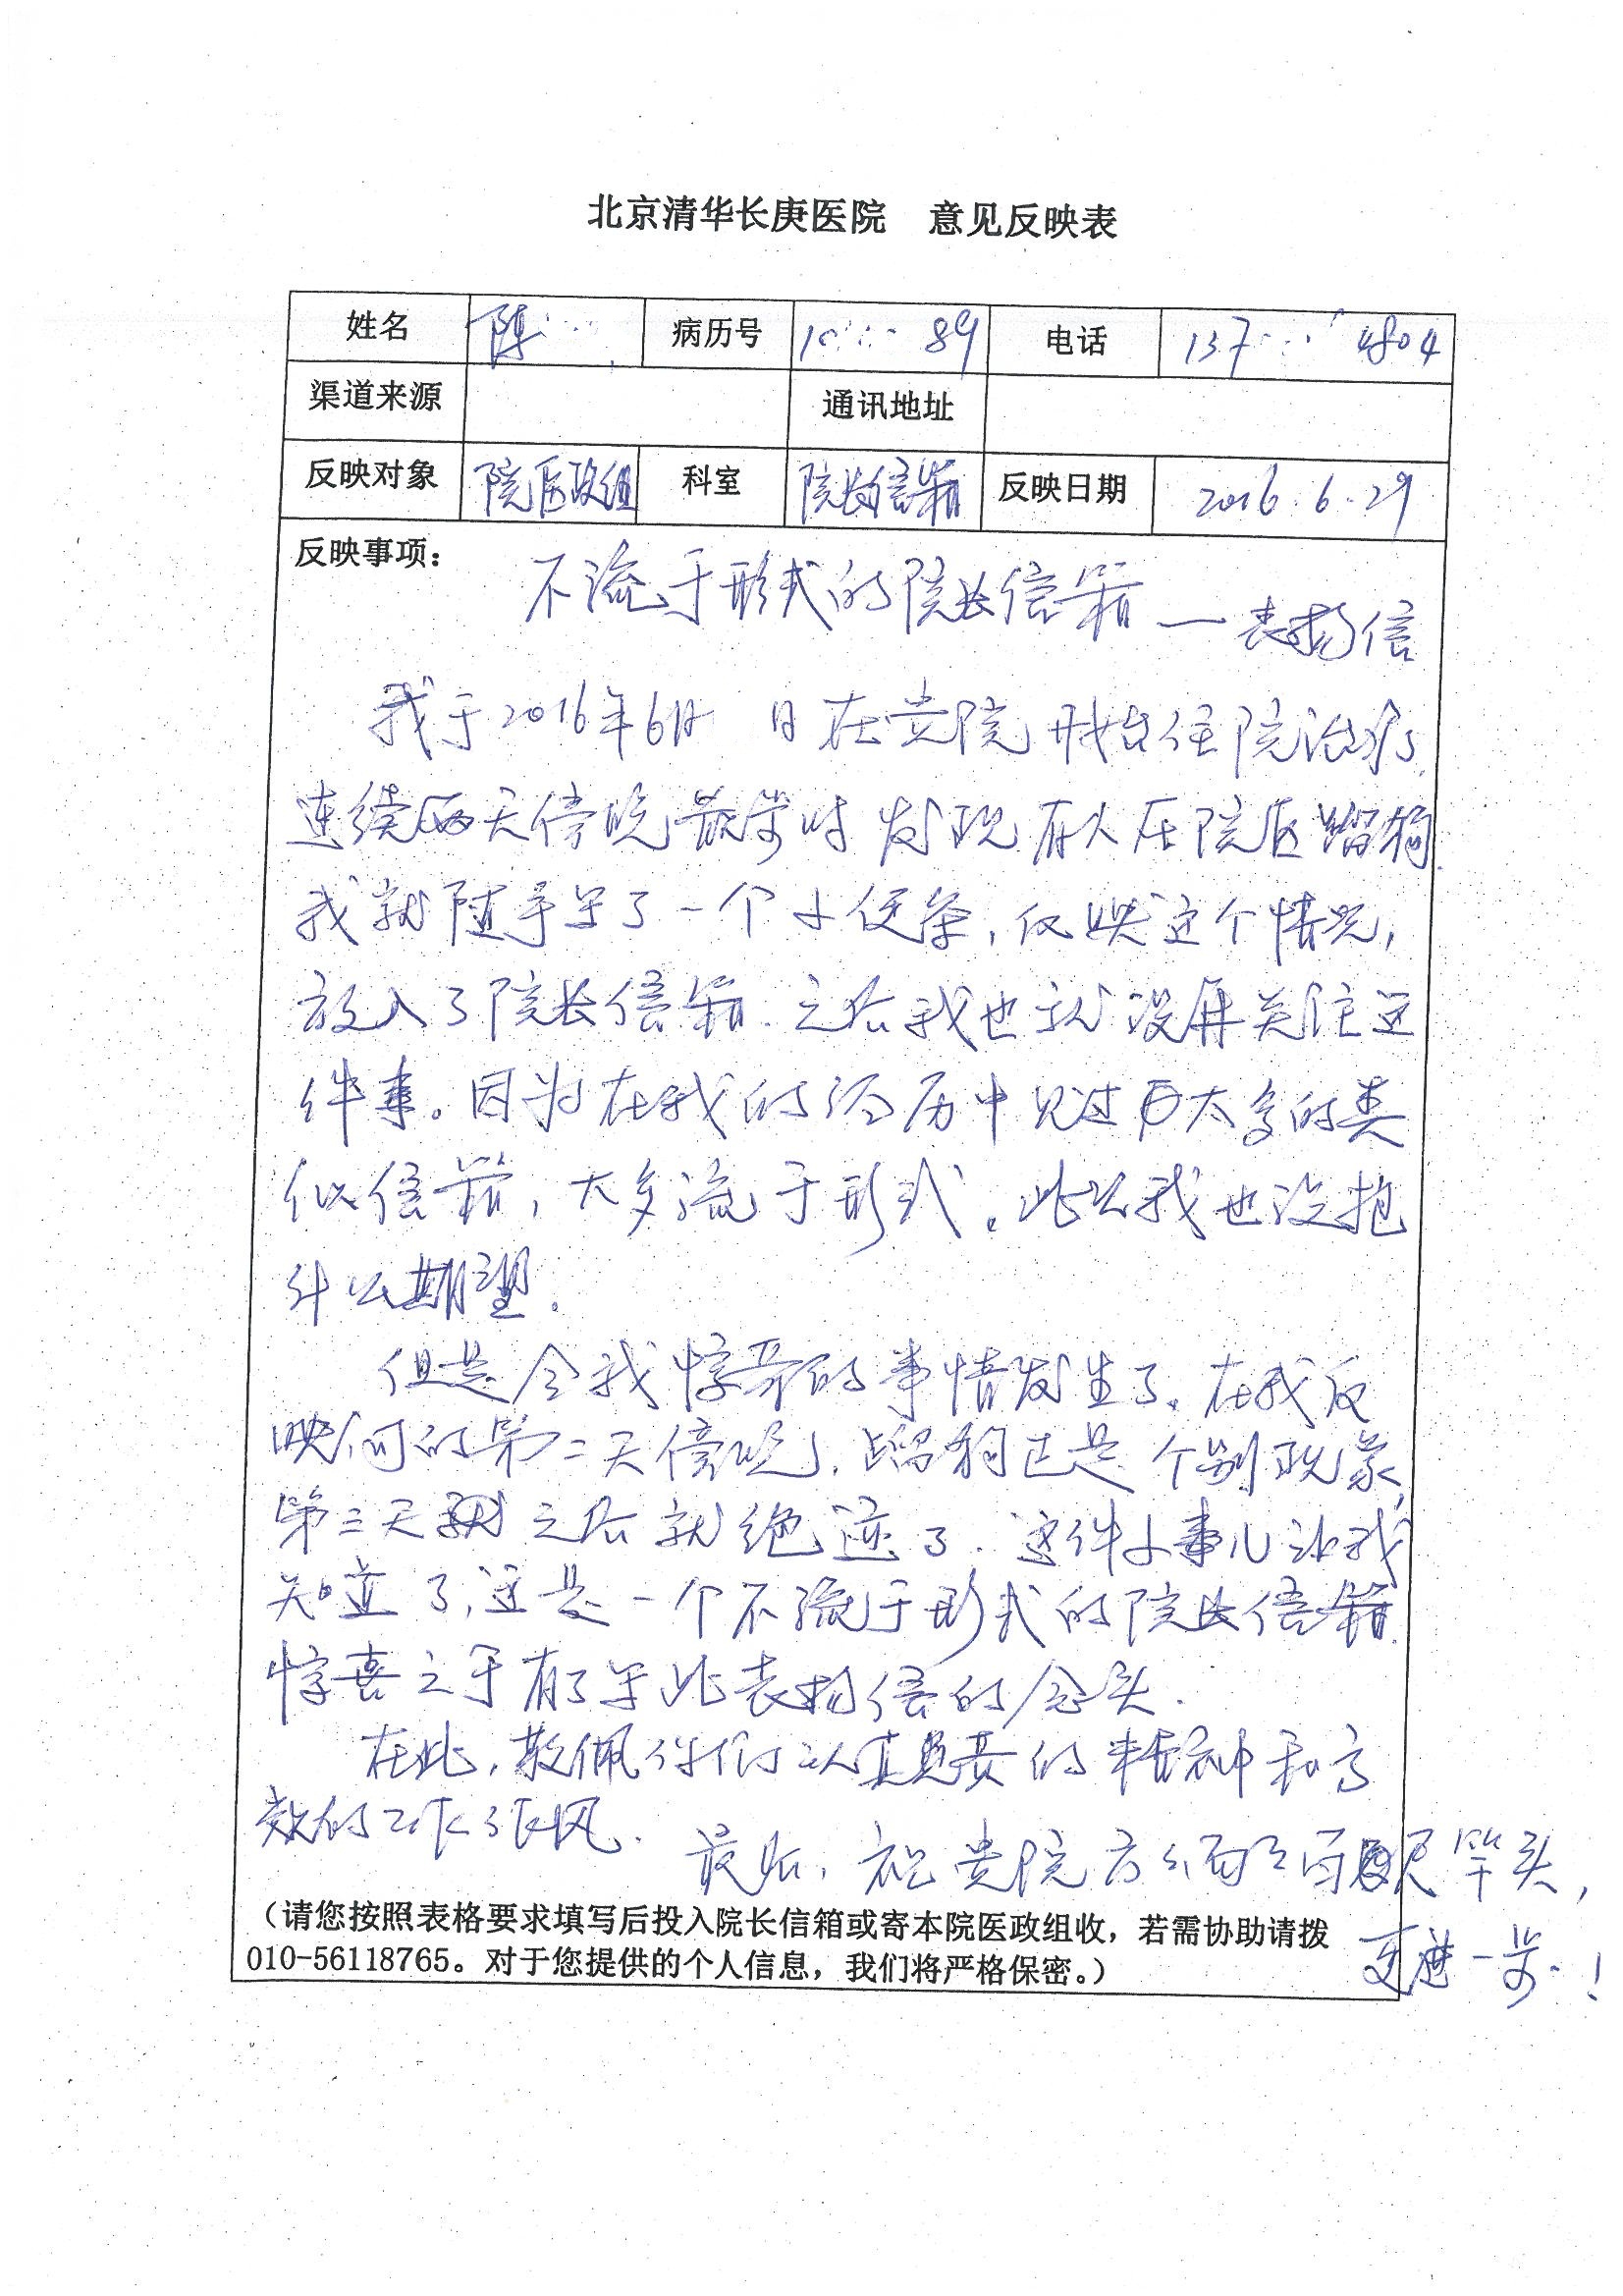 北京清华长庚医院 意见反映表
姓名 陈 病历号 10 89 电话 137 4804
渠道来源 通讯地址
反映对象 院医政组 科室 院长信箱 反映日期 2016.6.29
反映事项：
不流于形式的院长信箱
—表扬信
我于2016年6月 日在贵院开始住院治疗,
连续两天傍晚散步时发现有人在院区蹓狗.
我就随手写了一个小便条,反映这个情况,
放入了院长信箱.之后我也就没再关注这
件事。因为在我的经历中见过太多的类
似信箱,大多流于形式。此次我也没抱
什么期望.
但是令我惊奇的事情发生了。在我反
映问的第二天傍晚,蹓狗已是个别现象,
第三天之后就绝迹了.这件小事儿让我
知道了,这是一个不流于形式的院长信箱.
惊喜之于有了写此表扬信的念头.
在此,敬佩你们认真负责的精神和高
效的工作作风.
最后,祝贵院方方面面百尺竿头,
更进一步!
（请您按照表格要求填写后投入院长信箱或寄本院医政组收，若需协助请拨
010-56118765。对于您提供的个人信息，我们将严格保密。）